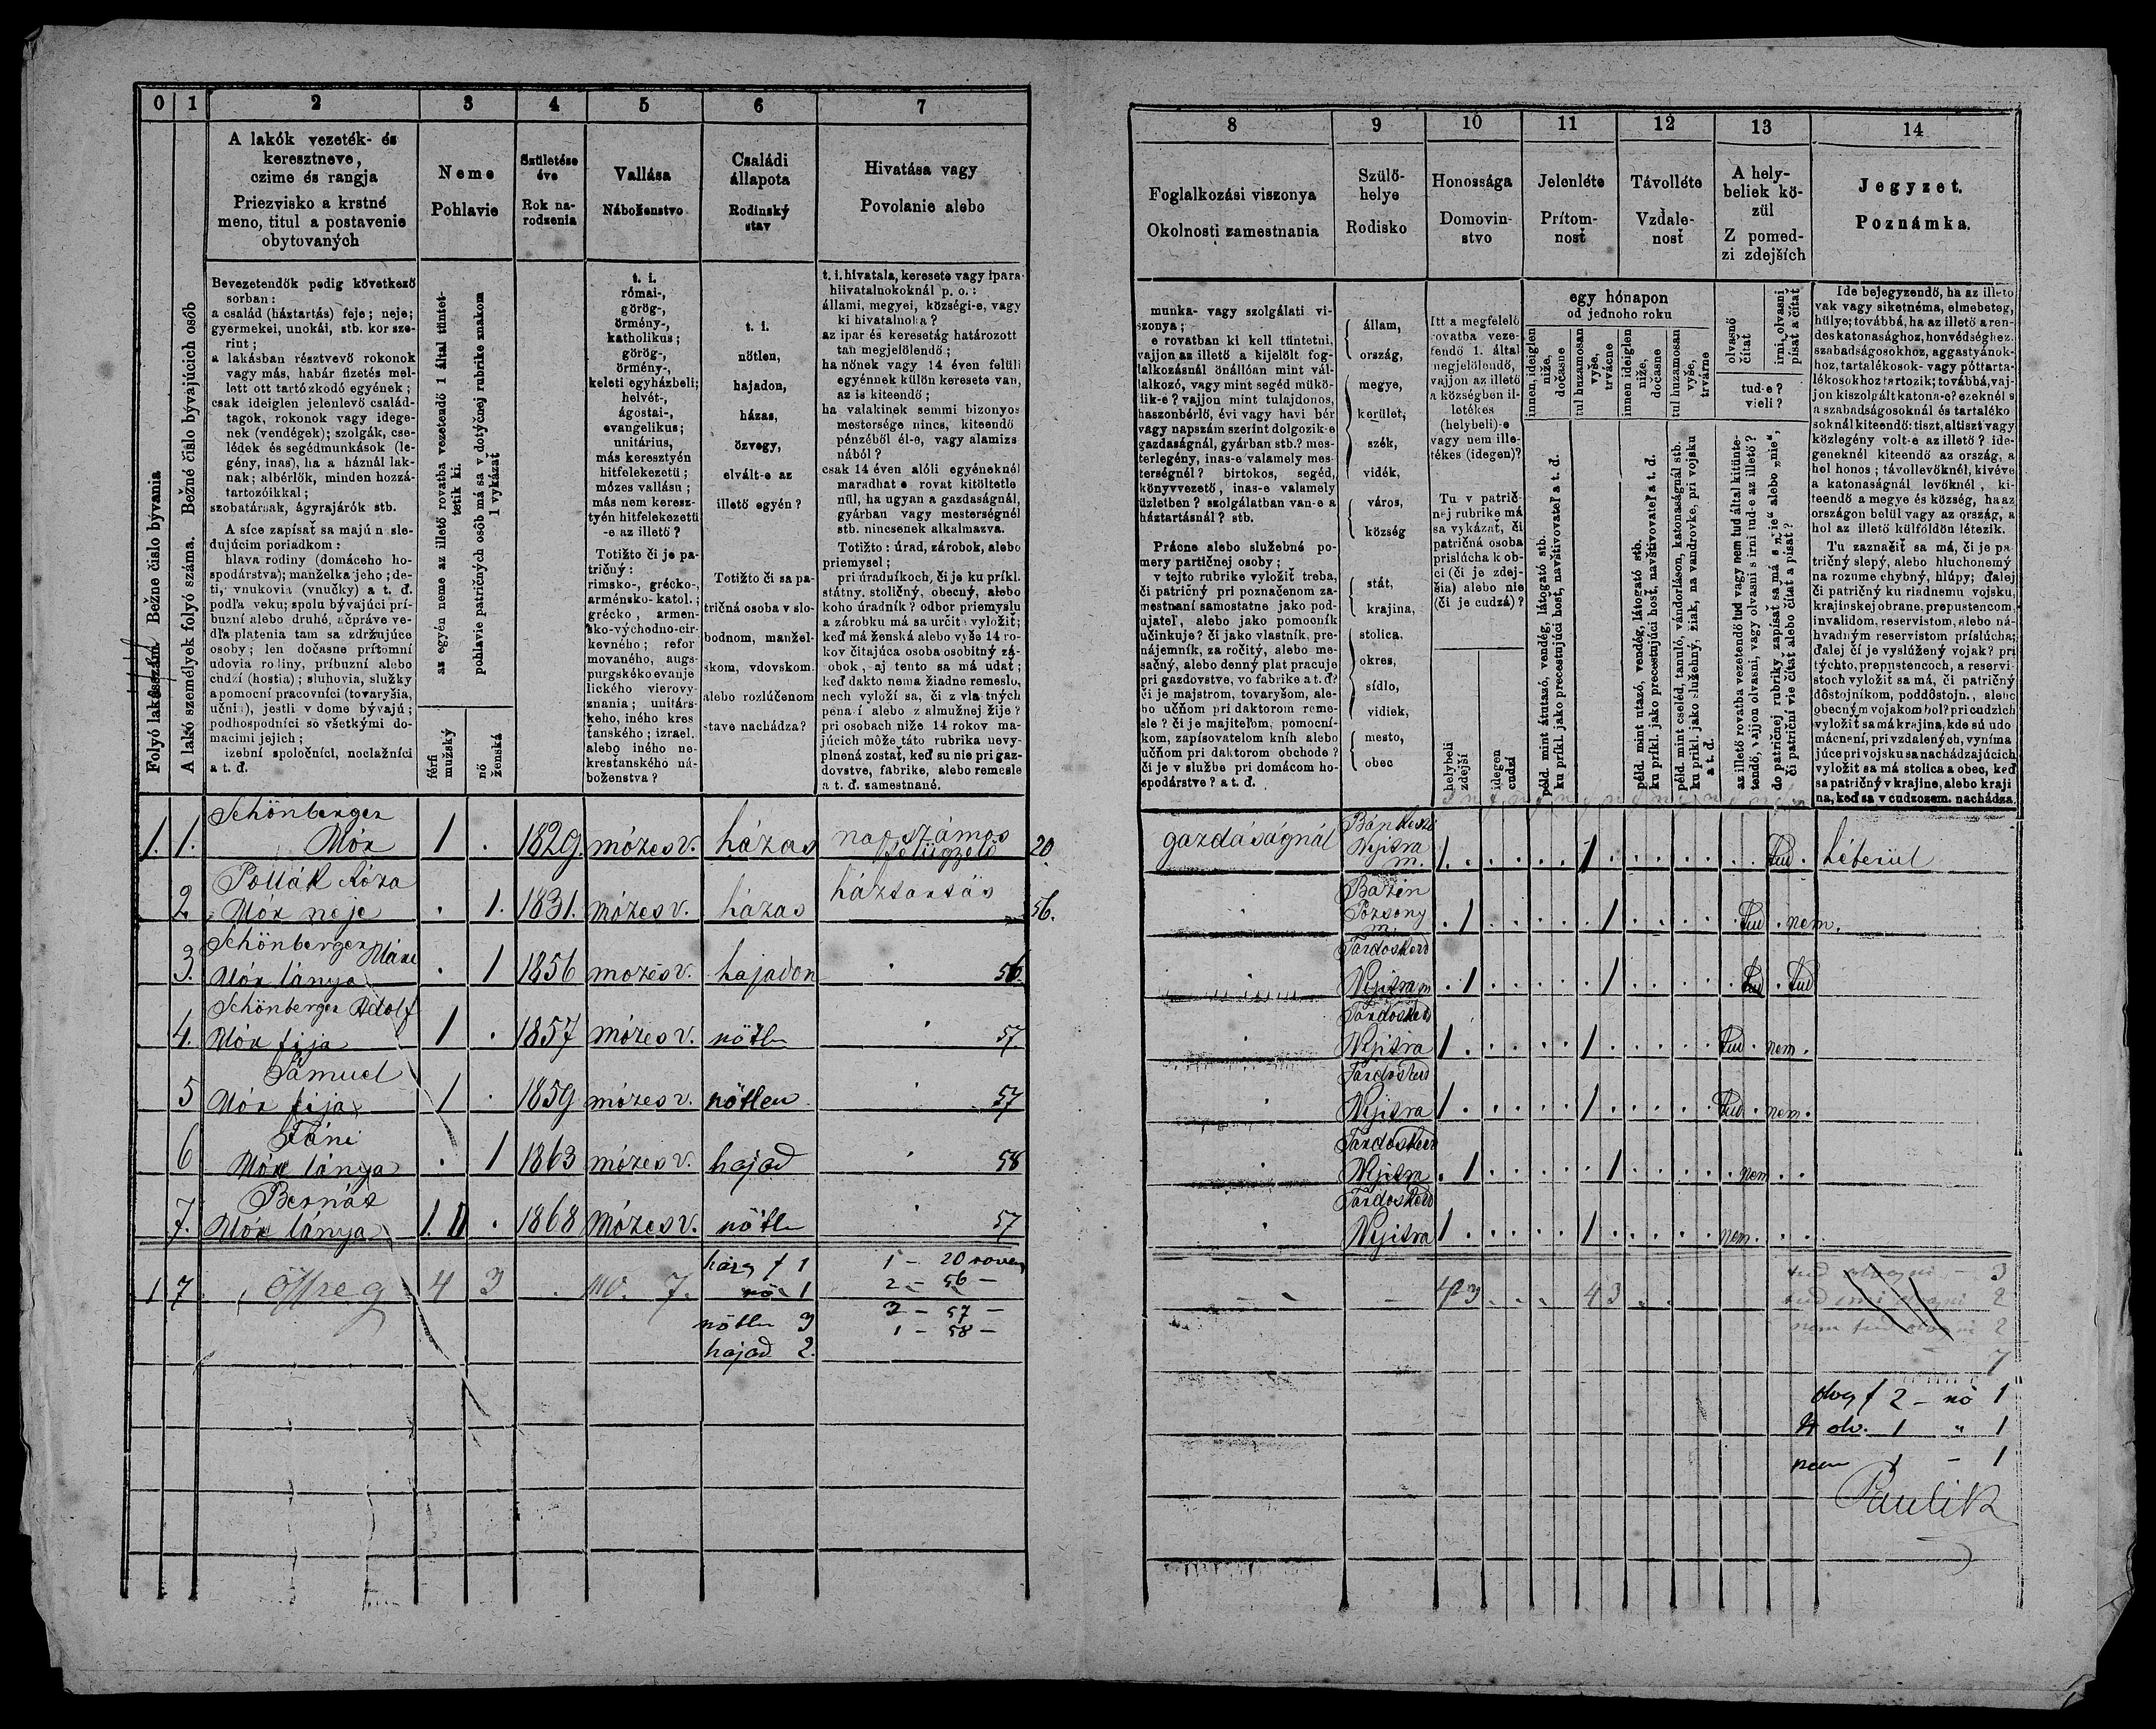 0 1 2 3 4 5 6 7
A lakók vezeték- és
keresztneve,
czime és rangja
Priezvisko a krstné
meno, titul a postavenie
obytovaných
Neme
Pohlavie
Születése
éve
Rok na-
rodzenia
Vallása
Náboženstvo
Családi
állapota
Rodinský
stav
Hivatása vagy
Povolanie alebo
Folyó lakásszám. Bežne čislo bývania
A lakó személyek folyó száma. Bežné čislo bývajúcich osôb
Bevezetendők pedig következő
sorban:
a család (háztartás) feje; neje;
gyermekei, unokái, stb. kor sze-
rint;
a lakásban résztvevő rokonok
vagy más, habár fizetés mel-
lett ott tartózkodó egyének;
csak ideiglen jelenlevő család-
tagok, rokonok vagy idege-
nek (vendégek); szolgák, cse-
lédek és segédmunkások (le-
gény, inas), ha a háznál lak-
nak; albérlők, minden hozzá-
tartozóikkal;
szobatársak, ágyrajárók stb.
A síce zapísať sa majú n sle-
dujúcim poriadkom:
hlava rodiny (domáceho ho-
spodárstva); manželka jeho; de-
ti, vnukovia (vnučky) a t. ď.
podľa veku; spolu bývajúci prí-
buzní alebo druhé, ačpráve ve-
dľa platenia tam sa zdržujúce
osoby; len dočasne prítomní
udovia rodiny, príbuzní alebo
cudzí (hostia); sluhovia, služky
a pomocní pracovníci (tovaryšia,
učni), jestli v dome bývajú;
podhospodníci so všetkými do-
macimi jejich;
izební spoločníci, noclažníci
a t. ď.
az egyén neme az illető rovatba vezetendő 1 által tüntet-
tetik ki.
pohlavie patričných osôb má sa v dotýčnej rubrike znakom
1 vykázať
férfi
mužský
nő
ženská
t. i.
római-,
görög-,
örmény-,
katholikus;
görög-,
örmény-,
keleti egyházbeli;
helvét-,
ágostai-,
evangelikus;
unitárius,
más keresztyén
hitfelekezetü;
mózes vallásu;
más nem keresz-
tyén hitfelekezetü
-e az illető?
Totižto či je pa-
tričný:
rimsko-, grécko-,
arménsko-katol.;
grécko, armen-
sko-východno-cir-
kevného; refor
movaného, augs-
purgskéko evanje
lického vierovy-
znania; unitárs-
keho, iného kres
ťanského; izrael.
alebo iného ne-
kresťanského ná-
boženstva?
t. i.
nőtlen,
hajadon,
házas,
özvegy,
elvált-e az
illető egyén?
Totižto či sa pa-
tričná osoba v slo-
bodnom, manžel-
skom, vdovskom.
alebo rozlúčenom
stave nachádza?
t. i. hivatala, keresete vagy ipara
hiivatalnokoknál p. o.:
állami, megyei, községi-e, vagy
ki hivatalnoka?
az ipár és keresetág határozott
tan megjelölendő;
ha nőnek vagy 14 éven felüli
egyénnek külön keresete van,
az is kiteendő;
ha valakinek semmi bizonyos
mestersége nincs, kiteendő
pénzéből él-e, vagy alamizs
nából?
csak 14 éven alóli egyéneknél
maradhat e rovat kitöltetle
nül, ha ugyan a gazdaságnál,
gyárban vagy mesterségnél
stb. nincsenek alkalmazva.
Totižto: úrad, zárobok, alebo
priemysel;
pri úradníkoch, či je ku príkl.
státny. stoličný, obecný, alebo
koho úradník? odbor priemyslu
a zárobku má sa určite vyložiť;
keď má ženská alebo vyše 14 ro-
kov čítajúca osoba osobitný zá-
obok, aj tento sa má udať;
keď dakto nema žiadne remeslo,
nech vyloží sa, či z vla tných
penazí alebo z almužnej žije?
pri osobach niže 14 rokov ma-
júcich môže táto rubrika nevy-
plnená zostať, keď su nie pri gaz-
dovstve, fabrike, alebo remesle
a t. ď. zamestnané.
1. 1. Schönberger
Mór 1 . 1829. mózes v. házas napszámos
felügyelő 20
2 Pollák Róza
Mór neje . 1. 1831. mózes v. házas háztartás 56.
3. Schönberger Mári
Mór lánya . 1 1856 mozes v. hajadon . 56.
4. Schönberger Adolf
Mór fija 1 . 1857 mózes v. nőtlen . 57.
5 Sámuel
Mór fija 1 . 1859 mózes v. nőtlen . 57
6 Fáni
Mór lánya . 1 1863 mózes v. hajad . 58
7. Bernát
Mór lánya 1. . 1868 Mózes v. nőtlen . 57
1 7 össreg 4 3 . mo. 7.
házas f 1
nő 1
nőtlen 3
hajad 2.
1 - 20 rovat
2 - 56 -
3 - 57 -
1 - 58 -
8 9 10 11 12 13 14
Foglalkozási viszonya
Okolnosti zamestnania
Szülő-
helye
Rodisko
Honossága
Domovin-
stvo
Jelenléte
Prítom-
nosť
Távolléte
Vzďale-
nosť
A hely-
beliek kö-
zül
Z pomed-
zi zdejších
Jegyzet.
Poznámka.
munka- vagy szolgálati vi-
szonya;
e rovatban ki kell tüntetni,
vajjon az illető a kijelölt fog-
lalkozásnál önállóan mint vál-
lalkozó, vagy mint segéd mükö-
lik-e? vajjon mint tulajdonos,
haszonbérlő, évi vagy havi bér
vagy napszám szerint dolgozik-e
gazdaságnál, gyárban stb.? mes-
terlegény, inas-e valamely mes-
terségnél? birtokos, segéd,
könyvvezető, inas-e valamely
üzletben? szolgálatban van-e a
háztartásnál? stb.
Prácne alebo služebné po-
mery partičnej osoby;
v tejto rubrike vyložiť treba,
či patričný pri poznačenom za-
mestnaní samostatne jako pod-
ujateľ, alebo jako pomocník
učinkuje? či jako vlastník, pre-
nájemník, za ročitý, alebo me-
sačný, alebo denný plat pracuje
pri gazdovste, vo fabrike a t. ď?
či je majstrom, tovaryšom, ale-
bo učňom pri daktorom reme-
sle? či je majiteľom, pomocní-
kom, zapísovatelom kníh alebo
učňom pri daktorom obchode?
či je v službe pri domácom ho-
spodárstve? a t. ď.
állam,
ország,
megye,
kerület,
szék,
vidék,
város,
község
stát,
krajina,
stolica,
okres,
sídlo,
vidiek,
mesto,
obec
Itt a megfelelő
rovatba veze-
tendő 1. által
megjelölendő,
vajjon az illető
a községben il-
letékes
(helybeli)-e
vagy nem ille-
tékes (idegen)?
Tu v patrič-
nej rubrike má
sa vykázať, či
patričná osoba
prislúcha k ob-
ci (či je zdej-
šia) alebo nie
(či je cudzá)?
helybeli
zdejší
idegen
cudzí
egy hónapon
od jednoho roku
innen ideiglen
niže,
dočasne
tul huzamosan
vyše,
trvácne
innen ideiglen
niže,
dočasne
tul huzamosan
vyše,
trvárne
péld. mint átutazó, vendég, látogató stb.
ku príkl. jako precestujúci hosť, navštivovateľ a t. ď.
péld. mint utazó, vendég, látogató stb.
ku príkl. jako precestujúci hosť, navštivovateľ a t. ď.
péld. mint cseléd, tanuló, vándorláson, katonaságnál stb.
ku príkl. jako služebný, žiak, na vandrovke, pri vojsku
a t. ď.
olvasnó
čítať
irni, olvasni
písať a čítať
tud-e?
vieli?
az illető rovatba vezetendő tud vagy nem tud által kitünte-
tendő, vajjon olvasni, vagy olvasni s irni tud-e az illető?
do patričnej rubriky zapísať sa má s „vie“ alebo „nie“,
či patrični vie čítať alebo čítať a písať?
Ide bejegyzendő, ha az illető
vak vagy siketnéma, elmebeteg,
hülye; továbbá, ha az illető a ren-
des katonasághoz, honvédséghez.
szabadságosokhoz, aggastyánok-
hoz, tartalékosok- vagy póttarta-
lékosokhoz tartozik; továbbá, vaj-
jon kiszolgált katona-e? ezeknél s
a szabadságosoknál és tartaléko
soknál kiteendő: tiszt, altiszt vagy
közlegény volt-e az illető? ide-
geneknél kiteendő az ország, a
hol honos; távollevőknél, kivéve
a katonaságnál levőknél, ki-
teendő a megye és község, ha az
országon belül vagy az ország, a
hol az illető külföldön létezik.
Tu zaznačiť sa má, či je pa
tričný slepý, alebo hluchonemý
na rozume chybný, hlúpy; ďalej
či patričný ku riadnemu vojsku,
krajinskej obrane, prepustencom,
invalidom, reservistom, alebo ná-
hvadným reservistom príslúcha;
ďalej čí je vyslúžený vojak? pri
týchto, prepustencoch, a reservi-
stoch vyložiť sa má, či patričný
dôstojníkom, poddôstojn., alebo
obecným vojakom bol? pri cudzích
vyložiť sa má krajina, kde sú udo
mácnení, pri vzdalených, vyníma
júce pri vojsku sa nachádzajúcich
vyložit sa má stolica a obec, keď
sa patričný v krajine, alebo kraji
na, keď sa v cudzozem. nachádza.
gazdaságnál Bánkeszi
Nyitra
m. 1 . 1 . tud .
. Bazin
Pozsony
m. . 1 . 1 . tud . nem.
Tardoskedd
Nyitra m . 1 . 1 . tud . tud
. Tardoskedd
Nyitra 1 . 1 . tud . nem .
. Tardoskedd
Nyitra 1 . 1 . tud . nem .
. Tardoskedd
Nyitra . 1 . 1 . nem . .
. Tardoskedd
Nyitra 1 . 1 . nem . .
4 3 . . . 4 3 . .
tud olvasni - 3
tud irni olvasni 2
nem tud olvasni 2
7
olvas f 2 - nő 1
olv. 1 " 1
nem 1 - 1
Paulik